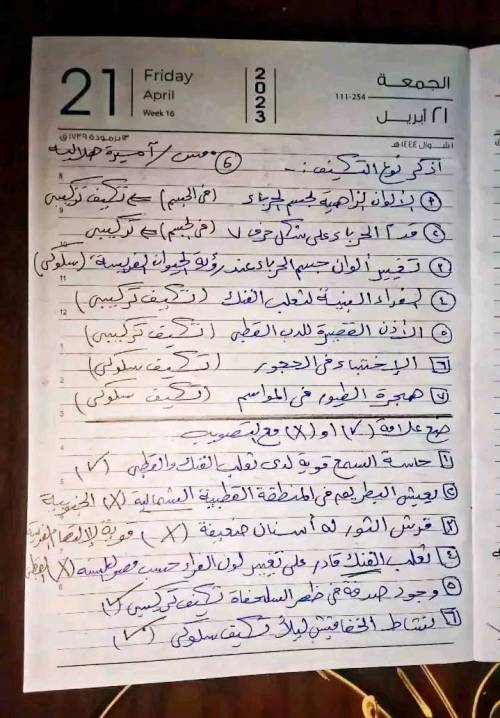 21
Friday
April
Week 16
2023
الجمعة
111-254
٢١ أبريل
١ شوال ١٤٤٤هـ
١٣ برموده ١٧٣٩ق
اذكر نوع التكيف :- ⑥ مس / أميرة هلاليه
① الألوان الزاهية لجسم الحرباء (فى الجسم) ⇐ تكيف تركيبى
② قدم الحرباء على شكل حرف V (فى الجسم) ⇐ تركيبى
③ تغيير ألوان جسم الحرباء عند رؤية الحيوان الفريسة (سلوكى)
④ الفراء البنية لثعلب الفنك (تكيف تركيبى)
⑤ الأذن القصيرة للدب القطبى (تكيف تركيبى)
٦ الإختباء فى الجحور (تكيف سلوكى)
٧ هجرة الطيور فى المواسم (تكيف سلوكى)
ضع علامة (✓) أو (X) مع التصويب
١ حاسة السمع قوية لدى ثعلب الفنك والقطبى (✓)
٢ يعيش البطريق فى المنطقة القطبية الشمالية (X) الجنوبية
٣ قرش الثور له أسنان ضعيفة (X) قوية لإلتقاط الفريسة
٤ ثعلب الفنك قادر على تغيير لون الفراء حسب فصول السنة (X) القطبى
٥ وجود صدفة فى ظهر السلحفاة تكيف تركيبى (✓)
٦ نشاط الخفافيش ليلاً تكيف سلوكى (✓)